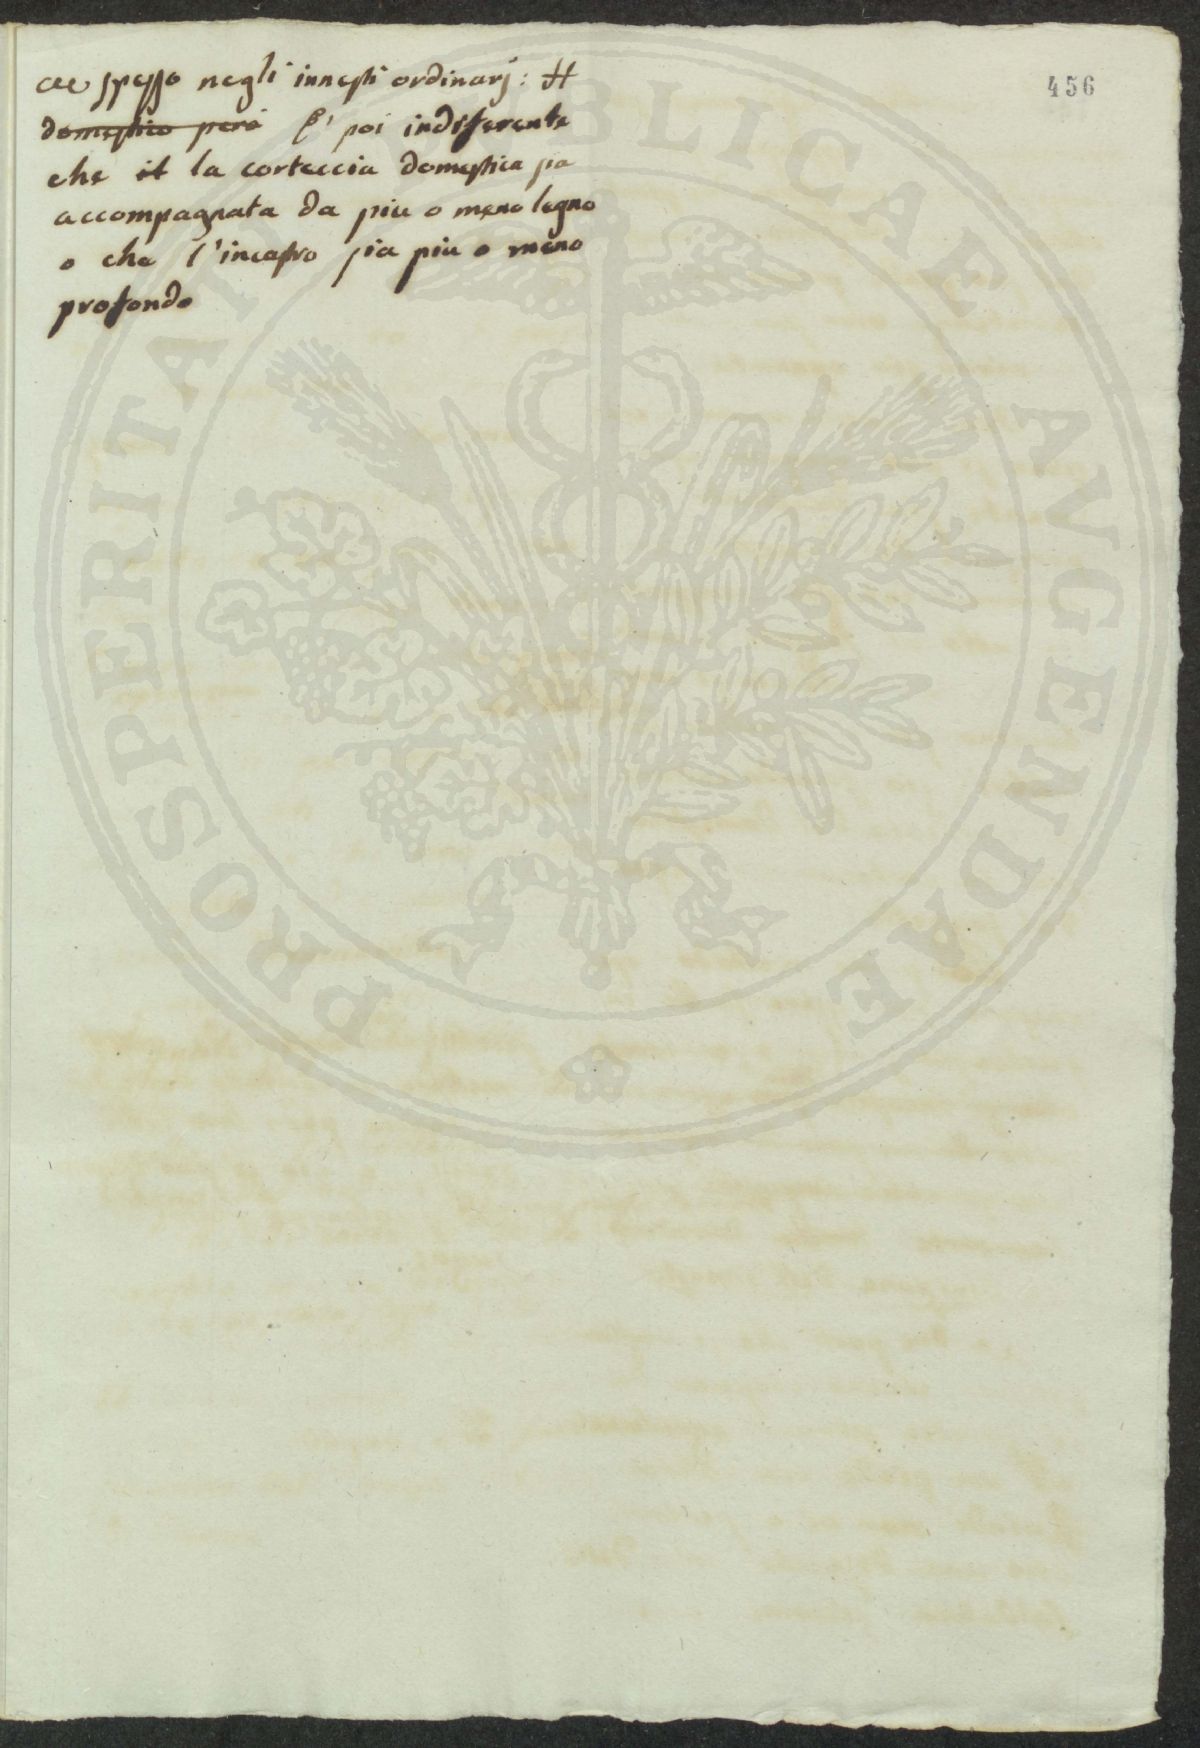 456
spesso negli innesti ordinarj: #
domestico però E' poi indiferente
che il la corteccia domestica sia
accompagnata da piu o meno legno
o che l'incastro sia piu o meno
profondo
PROSPERITATI PUBLICAE AVGENDAE